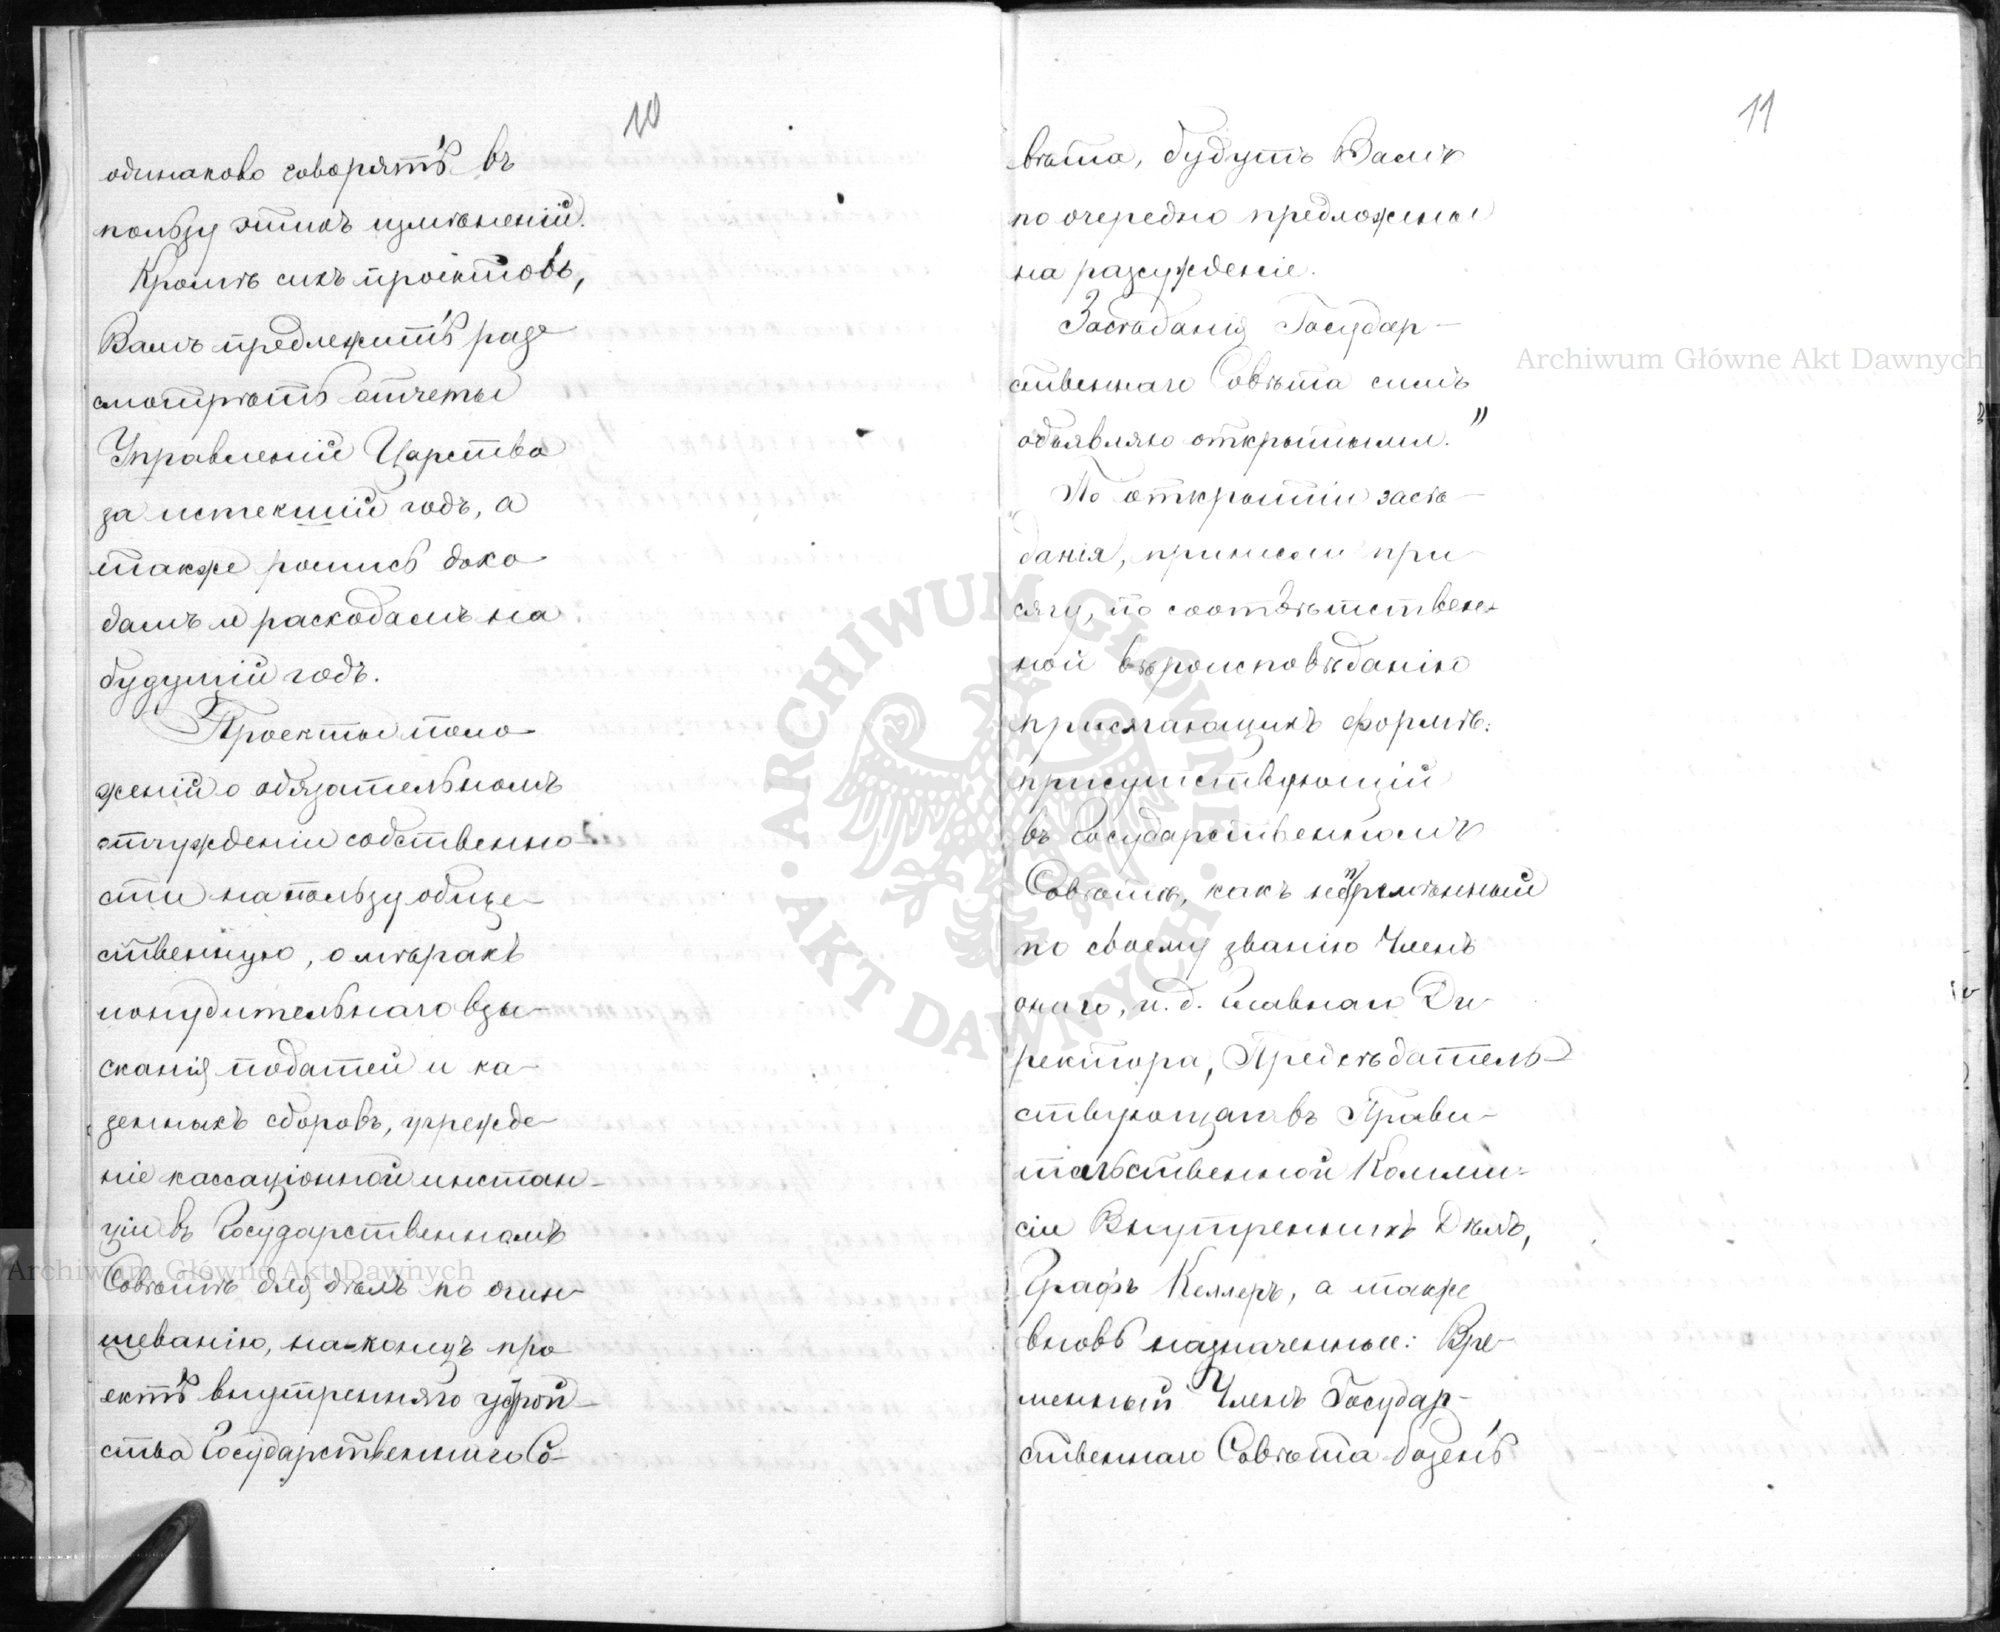 10
одинаково говорятъ въ
пользу этихъ измѣненій.
Кромѣ сихъ проэктовъ,
Вамъ предлежитъ раз-
смотрѣть отчеты
Управленій Царства
за истекшій годъ, а
также роспись дохо-
дамъ и расходамъ на
будущій годъ.
Проекты поло-
женій о обязательномъ
отчужденіи собственно-
сти на пользу обще-
ственную, о мѣрахъ
понудительнаго взы-
сканія податей и ка-
зенныхъ сборовъ, учрежде-
ніе кассаціонной инстан-
ціи въ Государственномъ
Совѣтѣ для дѣлъ по очин-
шеванію, на-конецъ про-
ектъ внутренняго устрой-
ства Государственнаго Со-
11
вѣта, будутъ Вамъ
по очередно предложены
на разсужденіе.
Засѣданія Государ-
ственнаго Совѣта симъ
объявляю открытыми."
По открытіи засѣ-
данія, принесли при-
сягу, по соотвѣтствен-
ной вѣроисповѣданію
присягающихъ формѣ:
присутствующій
въ Государственномъ
Совѣтѣ, какъ непремѣнный
по своему званію Членъ
онаго, и. д. Главнаго Ди-
ректора, Предсѣдатель-
ствующаго въ Прави-
тельственной Комми-
сіи Внутреннихъ Дѣлъ,
Графъ Келлеръ, а также
вновь назначенные: Вре-
менный Членъ Государ-
ственнаго Совѣта Бозенъ
Archiwum Główne Akt Dawnych
Archiwum Główne Akt Dawnych
ARCHIWUM GŁÓWNE · AKT DAWNYCH ·